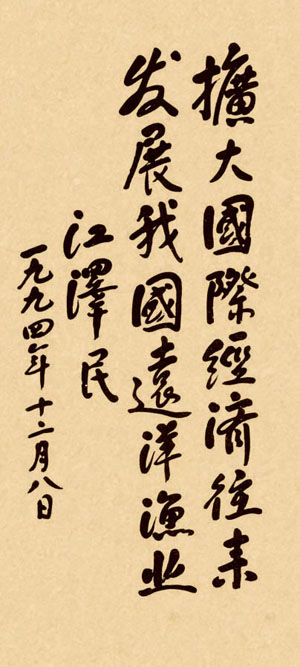 擴大國際經济往来
发展我國遠洋渔业
江澤民
一九九四年十二月八日